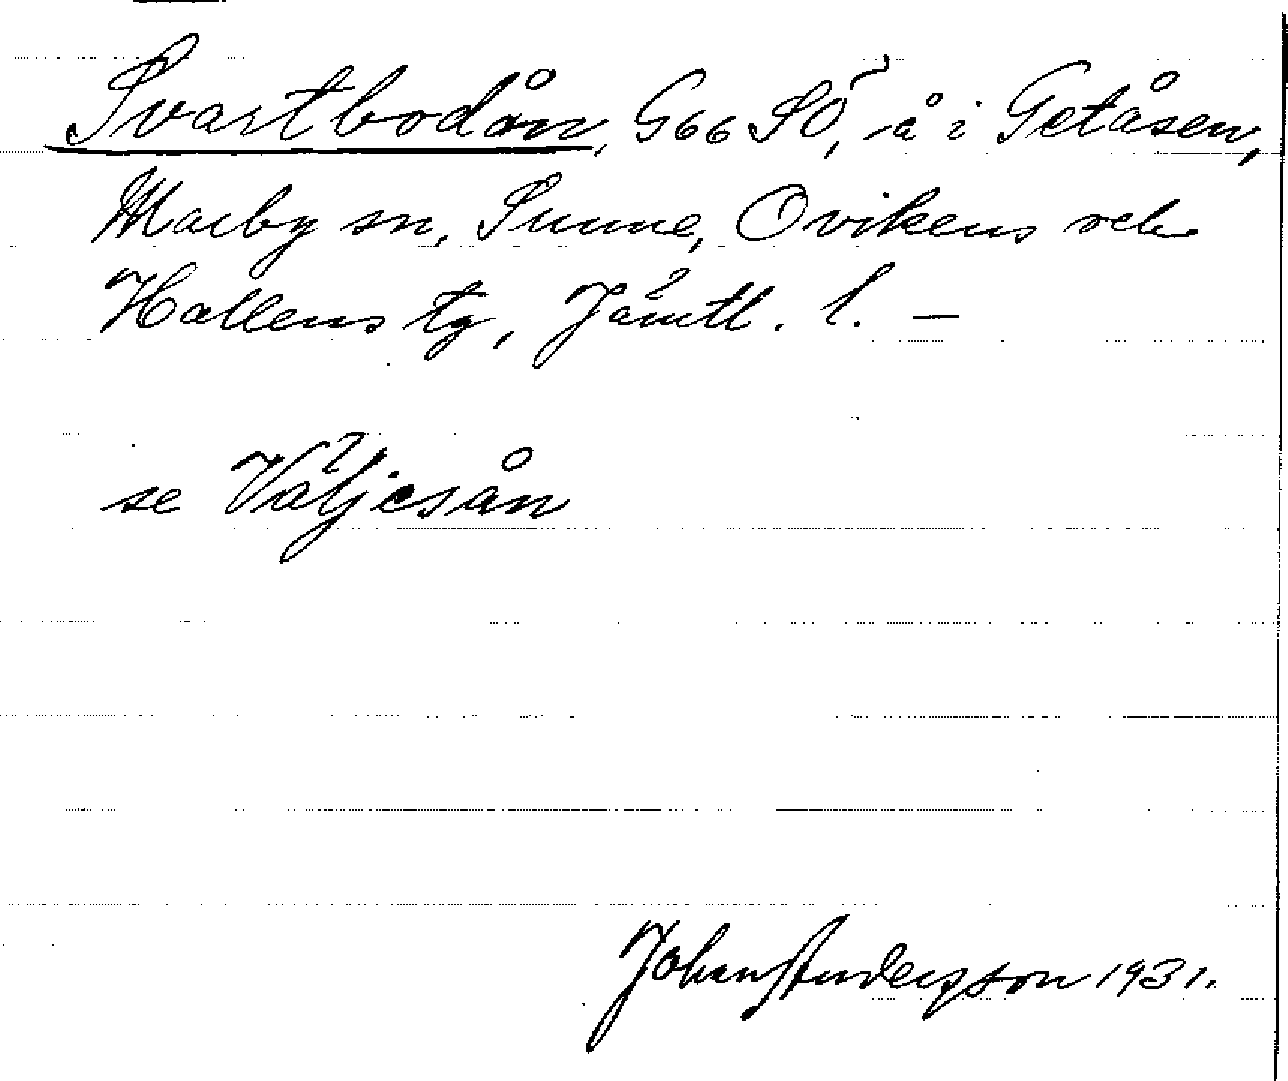 Svartbodån, G66 SÖ, å i Getåsen,
Marby sn, Sunne, Ovikens och
Hallens tg, Jämtl. l. —
se Väljesån
Johan Andersson 1931.